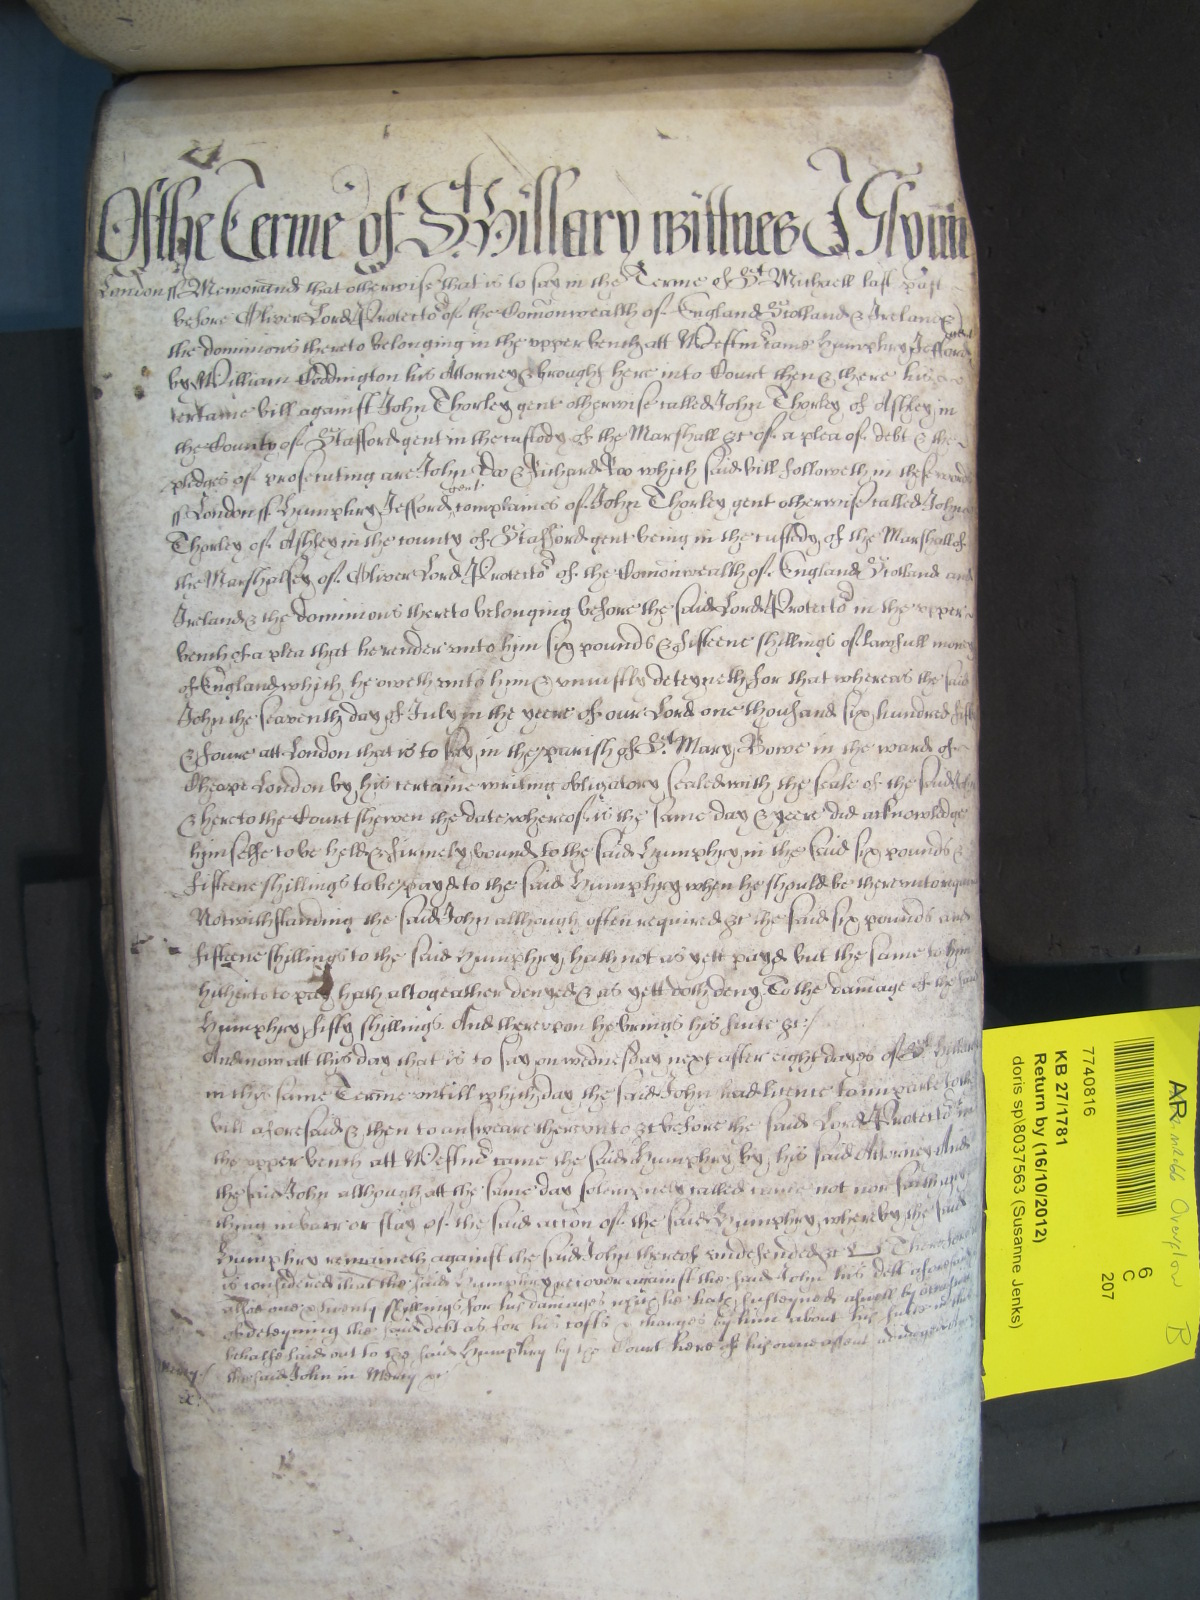 Of the Terme of St Hillary wittnes J Glynn
London ss Memorand that otherwise that is to say in the Terme of St Michaell last past
before Oliver Lord Protector of the Comonwealth of England Scotland & Ireland &
the dominions thereto belonging in the upper bench att Westm came Humphry Jefford gent
by William Coddington his Attorney & brought here into Court then & there his
certaine bill against John Thorley gent otherwise called John Thorley of Ashley in
the County of Stafford gent in the custody of the Marshall &c of a plea of debt & the
pledges of prosecuting are John Doo & Richard Roo which said bill followeth in these words
ss London ss Humphry Jefford gent complaines of John Thorley gent otherwise called John
Thorley of Ashley in the county of Stafford gent being in the custody of the Marshall of
the Marshalsey of Oliver Lord Protector of the Comonwealth of England Scotland and
Ireland & the dominions thereto belonging before the said Lord Protector in the upper
bench of a plea that he render unto him six pounds & fifteene shillings of lawfull money
of England which he oweth unto him & uniustly deteyneth for that whereas the said
John the seaventh day of July in the yeere of our Lord one thousand six hundred fifty
& foure att London that is to say in the parish of St Mary Bowe in the ward of
Cheape London by his certaine writing obligatory sealed with the seale of the said John
& hereto the Court shewen the date whereof is the same day & yeere did acknowledge
himselfe to be held & firmely bound to the said Humphry in the said six pounds &
fifteene shillings to be payd to the said Humphry when he should be thereunto
Notwithstanding the said John although often required &c the said six pounds and
fifteene shillings to the said Humphry hath not as yett payd but the same to him
hitherto to pay hath altogeather denyed & as yett doth deny To the damage of the said
Humphry fifty shillings And thereupon he brings his suite &c
And now att this day that is to say on wednesday next after eight dayes of St Hillary
in this same Terme untill which day the said John had licence to imparle to the
bill aforesaid & then to answeare thereunto &c before the said Lord Protector in
the upper bench att Westm came the said Humphry by his said Attorney And
the said John although att the same day solempnely called came not nor saith any
thing in barr or stay of the said accon of the said Humphry whereby the said
Humphry remaineth against the said John thereof undefended &c Therefore
is considered that the said Humphry recover against the said John his debt aforesaid
alsoe one & twenty shillings for his damages which he hath susteyned aswell by occasion
of deteyning the said debt as for his costs & charges by him about his suite in this
behalfe laid out to the said Humphry by the Court here of his owne assent adiudged And
Mercy the said John in Mercy &c
&c
7740816
KB 27/1781
Return by (16/10/2012)
doris sp\8037563 (Susanne Jenks)
6
C
207
Overflow
B